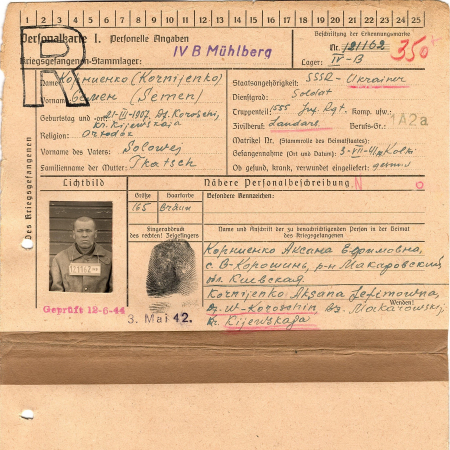 1 2 3 4 5 6 7 8 9 10 11 12 13 14 15 16 17 18 19 20 21 22 23 24 25
Personalkarte I. Personelle Angaben
Beschriftung der Erkennungsmarke
Kriegsgefangenen-Stammlager:
IV B Mühlberg
Nr. 121162
350
Lager: IV-B
R
Name: Корниенко (Kornijenko)
Vorname: Семен (Semen)
Geburtstag und -ort: 21-III-1907, Df. Koroschi,
Kr. Kijewskaja
Religion: Ortodox
Vorname des Vaters: Solowej
Familienname der Mutter: Tkatsch
Staatsangehörigkeit: SSSR - Ukrainer
Dienstgrad: Soldat
Truppenteil: 555 Inf. Rgt. Komp. usw.:
Zivilberuf: Landarb. Berufs-Gr.: 1A2a
Matrikel Nr. (Stammrolle des Heimatstaates):
Gefangennahme (Ort und Datum): 3-VII-41
Ob gesund, krank, verwundet eingeliefert: gesund
Des Kriegsgefangenen
Lichtbild
Nähere Personalbeschreibung N o
Größe
Haarfarbe
Besondere Kennzeichen:
165
Braun
Fingerabdruck
des rechten! Zeigefingers
Name und Anschrift der zu benachrichtigenden Person in der Heimat
des Kriegsgefangenen
Корниенко Аксана Ефимовна,
с. В-Корошинь, р-н Макаровский
обл. Киевская
Kornijenko Aksana Jefimowna
Wenden!
Df. W-Koroschin Bz. Makarowskij
Kr. Kijewskaja
Geprüft 12-6-44
3. Mai 42.